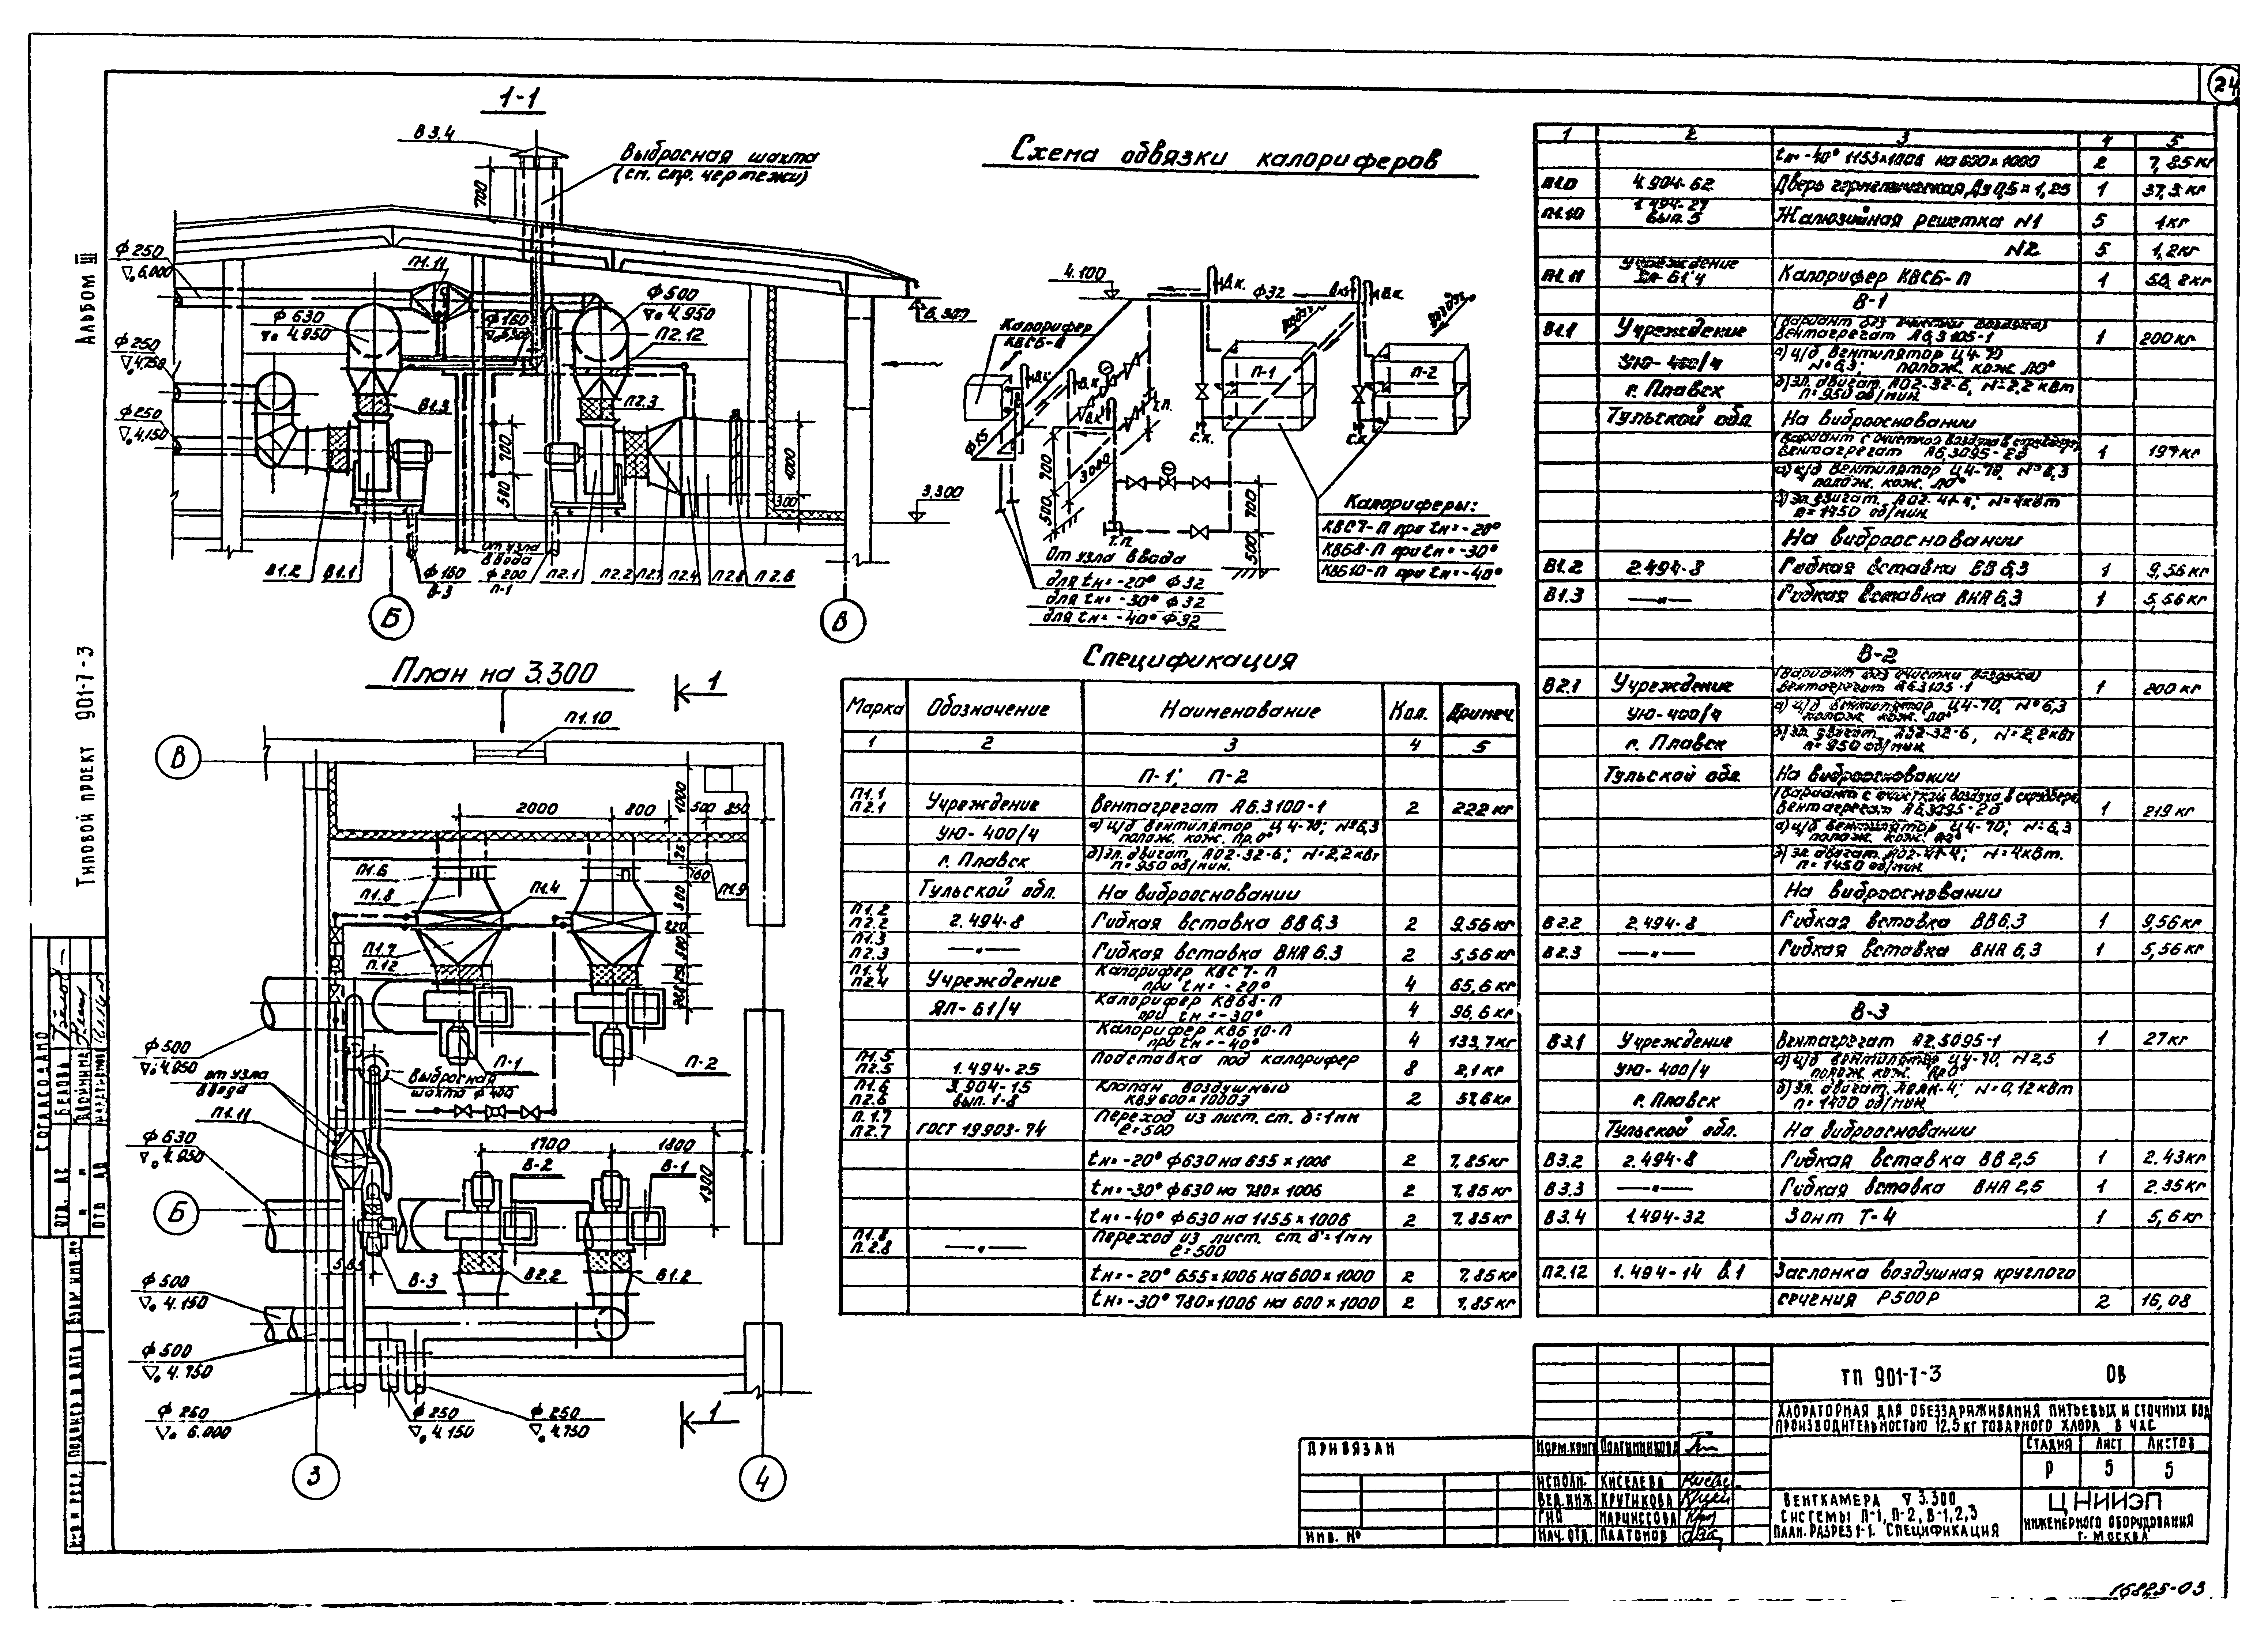 24
Альбом III
Типовой проект 901-7-3
1-1
В3.4
Выбросная шахта
(см. стр. чертежи)
700
ф 250
6.000
П1.11
ф 630
4.950
ф 160
ф 500
4.950
П2.12
6.300
ф 250
4.750
ф 250
4.150
В1.3
П2.3
700
500
1000
300
3.300
В1.2
В1.1
ф 160
В-3
от узла
ввода
ф 200
П-1
П2.1
П2.2
П2.7
П2.4
П2.8
П2.6
Б
В
Схема обвязки калориферов
4.100
В.К.
ф32
В.К.
воздух
воздух
Калорифер
КВСБ-П
П-1
П-2
ф15
Т.П.
С.К.
С.К.
700
500
3.000
Т.П.
700
500
От узла ввода
для tн=-20° ф32
для tн=-30° ф32
для tн=-40° ф32
Калориферы:
КВС7-П при tн=-20°
КВБ8-П при tн=-30°
КВБ10-П при tн=-40°
План на 3.300
1
П1.10
В
2000
800
1000
500
850
П1.6
П1.8
П1.4
П1.9
П1.7
П.12
П-1
П-2
ф 500
4.950
от узла
ввода
П1.11
Выбросная
шахта ф 400
ф 630
4.950
1700
1800
В-2
В-1
1300
Б
В-3
В2.2
В1.2
ф 500
4.150
ф 500
4.750
ф 250
6.000
ф 250
4.150
ф 250
4.750
1
3
4
Спецификация
Марка Обозначение Наименование Кол. Примеч
1 2 3 4 5
П-1; П-2
П1.1 П2.1 Учреждение Вентагрегат А6.3100-1 2 222 кг
УЮ-400/4 а) ц/б вентилятор Ц4-70; №6,3 полож. кож. Пр.0°
г. Плавск б) эл. двигат. А02-32-6; N=2,2 кВт n=950 об/мин.
Тульской обл. На виброосновании
П1.2 П2.2 2.494-8 Гибкая вставка ВВ 6,3 2 9,56 кг
П1.3 П2.3 —"— Гибкая вставка ВНА 6.3 2 5,56 кг
П1.4 П2.4 Учреждение Калорифер КВС7-П при tн=-20° 4 65,6 кг
ЯЛ-61/4 Калорифер КВБ8-П при tн=-30° 4 96,6 кг
Калорифер КВБ10-П при tн=-40° 4 133,7 кг
П1.5 П2.5 1.494-25 Подставка под калорифер 8 2,1 кг
П1.6 П2.6 3.904-15 вып. 1-8 Клапан воздушный КВУ600х1000Э 2 57,6 кг
П.1.7 П2.7 ГОСТ 19903-74 Переход из лист. ст. δ=1мм ℓ=500
tн=-20° ф630 на 655×1006 2 7,85 кг
tн=-30° ф630 на 780×1006 2 7,85 кг
tн=-40° ф630 на 1155×1006 2 7,85 кг
П1.8 П.2.8 —"— Переход из лист. ст. δ=1мм ℓ=500
tн=-20° 655×1006 на 600×1000 2 7.85 кг
tн=-30° 780×1006 на 600×1000 2 7.85 кг
1 2 3 4 5
tн=-40° 1155×1006 на 600×1000 2 7,85 кг
4.904-62 Дверь герметическая Дз 0,5×1,25 1 37,3 кг
П1.10 1.494-27 вып. 5 Жалюзийная решетка N1 5 1кг
N2 5 1,2кг
П1.11 Учреждение ЯЛ-61/4 Калорифер КВСБ-П 1 50,8кг
В-1
В1.1 Учреждение (Вариант без очистки воздуха) Вентагрегат А6,3105-1 1 200 кг
УЮ-400/4 а) ц/б вентилятор Ц4-70 №6,3; полож. кож. Л0°
г. Плавск б) эл. двигат. А02-32-6, N=2,2 кВт n=950 об/мин.
Тульской обл. На виброосновании
(Вариант с очисткой воздуха в скруббере) Вентагрегат А6,3095-2б 1 197 кг
а) ц/б вентилятор Ц4-70, №6,3 полож. кож. Л0°
б) эл. двигат. А02-41-4; N=4кВт n=1450 об/мин.
На виброосновании
В1.2 2.494-8 Гибкая вставка ВВ 6,3 1 9,56 кг
В1.3 —"— Гибкая вставка ВНА 6,3 1 5,56 кг
В-2
В2.1 Учреждение (Вариант без очистки воздуха) Вентагрегат А6.3105-1 1 200 кг
УЮ-400/4 а) ц/б вентилятор Ц4-70, №6,3 полож. кож. Л0°
г. Плавск б) эл. двигат. А02-32-6, N=2,2кВт n=950 об/мин.
Тульской обл На виброосновании
(Вариант с очисткой воздуха в скруббере) Вентагрегат А6,3095-2б 1 219 кг
а) ц/б вентилятор Ц4-70; №6,3 полож. кож. Л0°
б) эл. двигат. А02-41-4; N=4кВт. n=1450 об/мин.
На виброосновании
В2.2 2.494-8 Гибкая вставка ВВ6,3 1 9,56 кг
В2.3 —"— Гибкая вставка ВНА 6,3 1 5,56 кг
В-3
В3.1 Учреждение Вентагрегат А2,5095-1 1 27 кг
УЮ-400/4 а) ц/б вентилятор Ц4-70, N2,5 полож. кож. Пр0°
г. Плавск N=0,12кВт n=1400 об/мин.
Тульской обл. На виброосновании
В3.2 2.494-8 Гибкая вставка ВВ 2,5 1 2.43кг
В3.3 —"— Гибкая вставка ВНА 2,5 1 2.35кг
В3.4 1.494-32 Зонт Т-4 1 5,6 кг
П2.12 1.494-14 в.1 Заслонка воздушная круглого
сечения Р500Р 2 16,08
ТП 901-7-3 ОВ
Хлораторная для обеззараживания питьевых и сточных вод
производительностью 12,5 кг товарного хлора в час
Стадия Лист Листов
Р 5 5
Венткамера 3.300
Системы П-1, П-2, В-1,2,3
План. Разрез 1-1. Спецификация
ЦНИИЭП
инженерного оборудования
г. Москва
Привязан
Инв. №
Норм.конт
Исполн. Киселева
Вед.инж. Крутикова
ГИП Нарциссова
Нач.отд. Платонов
Согласовано
Отд. АС Белова
16825-03